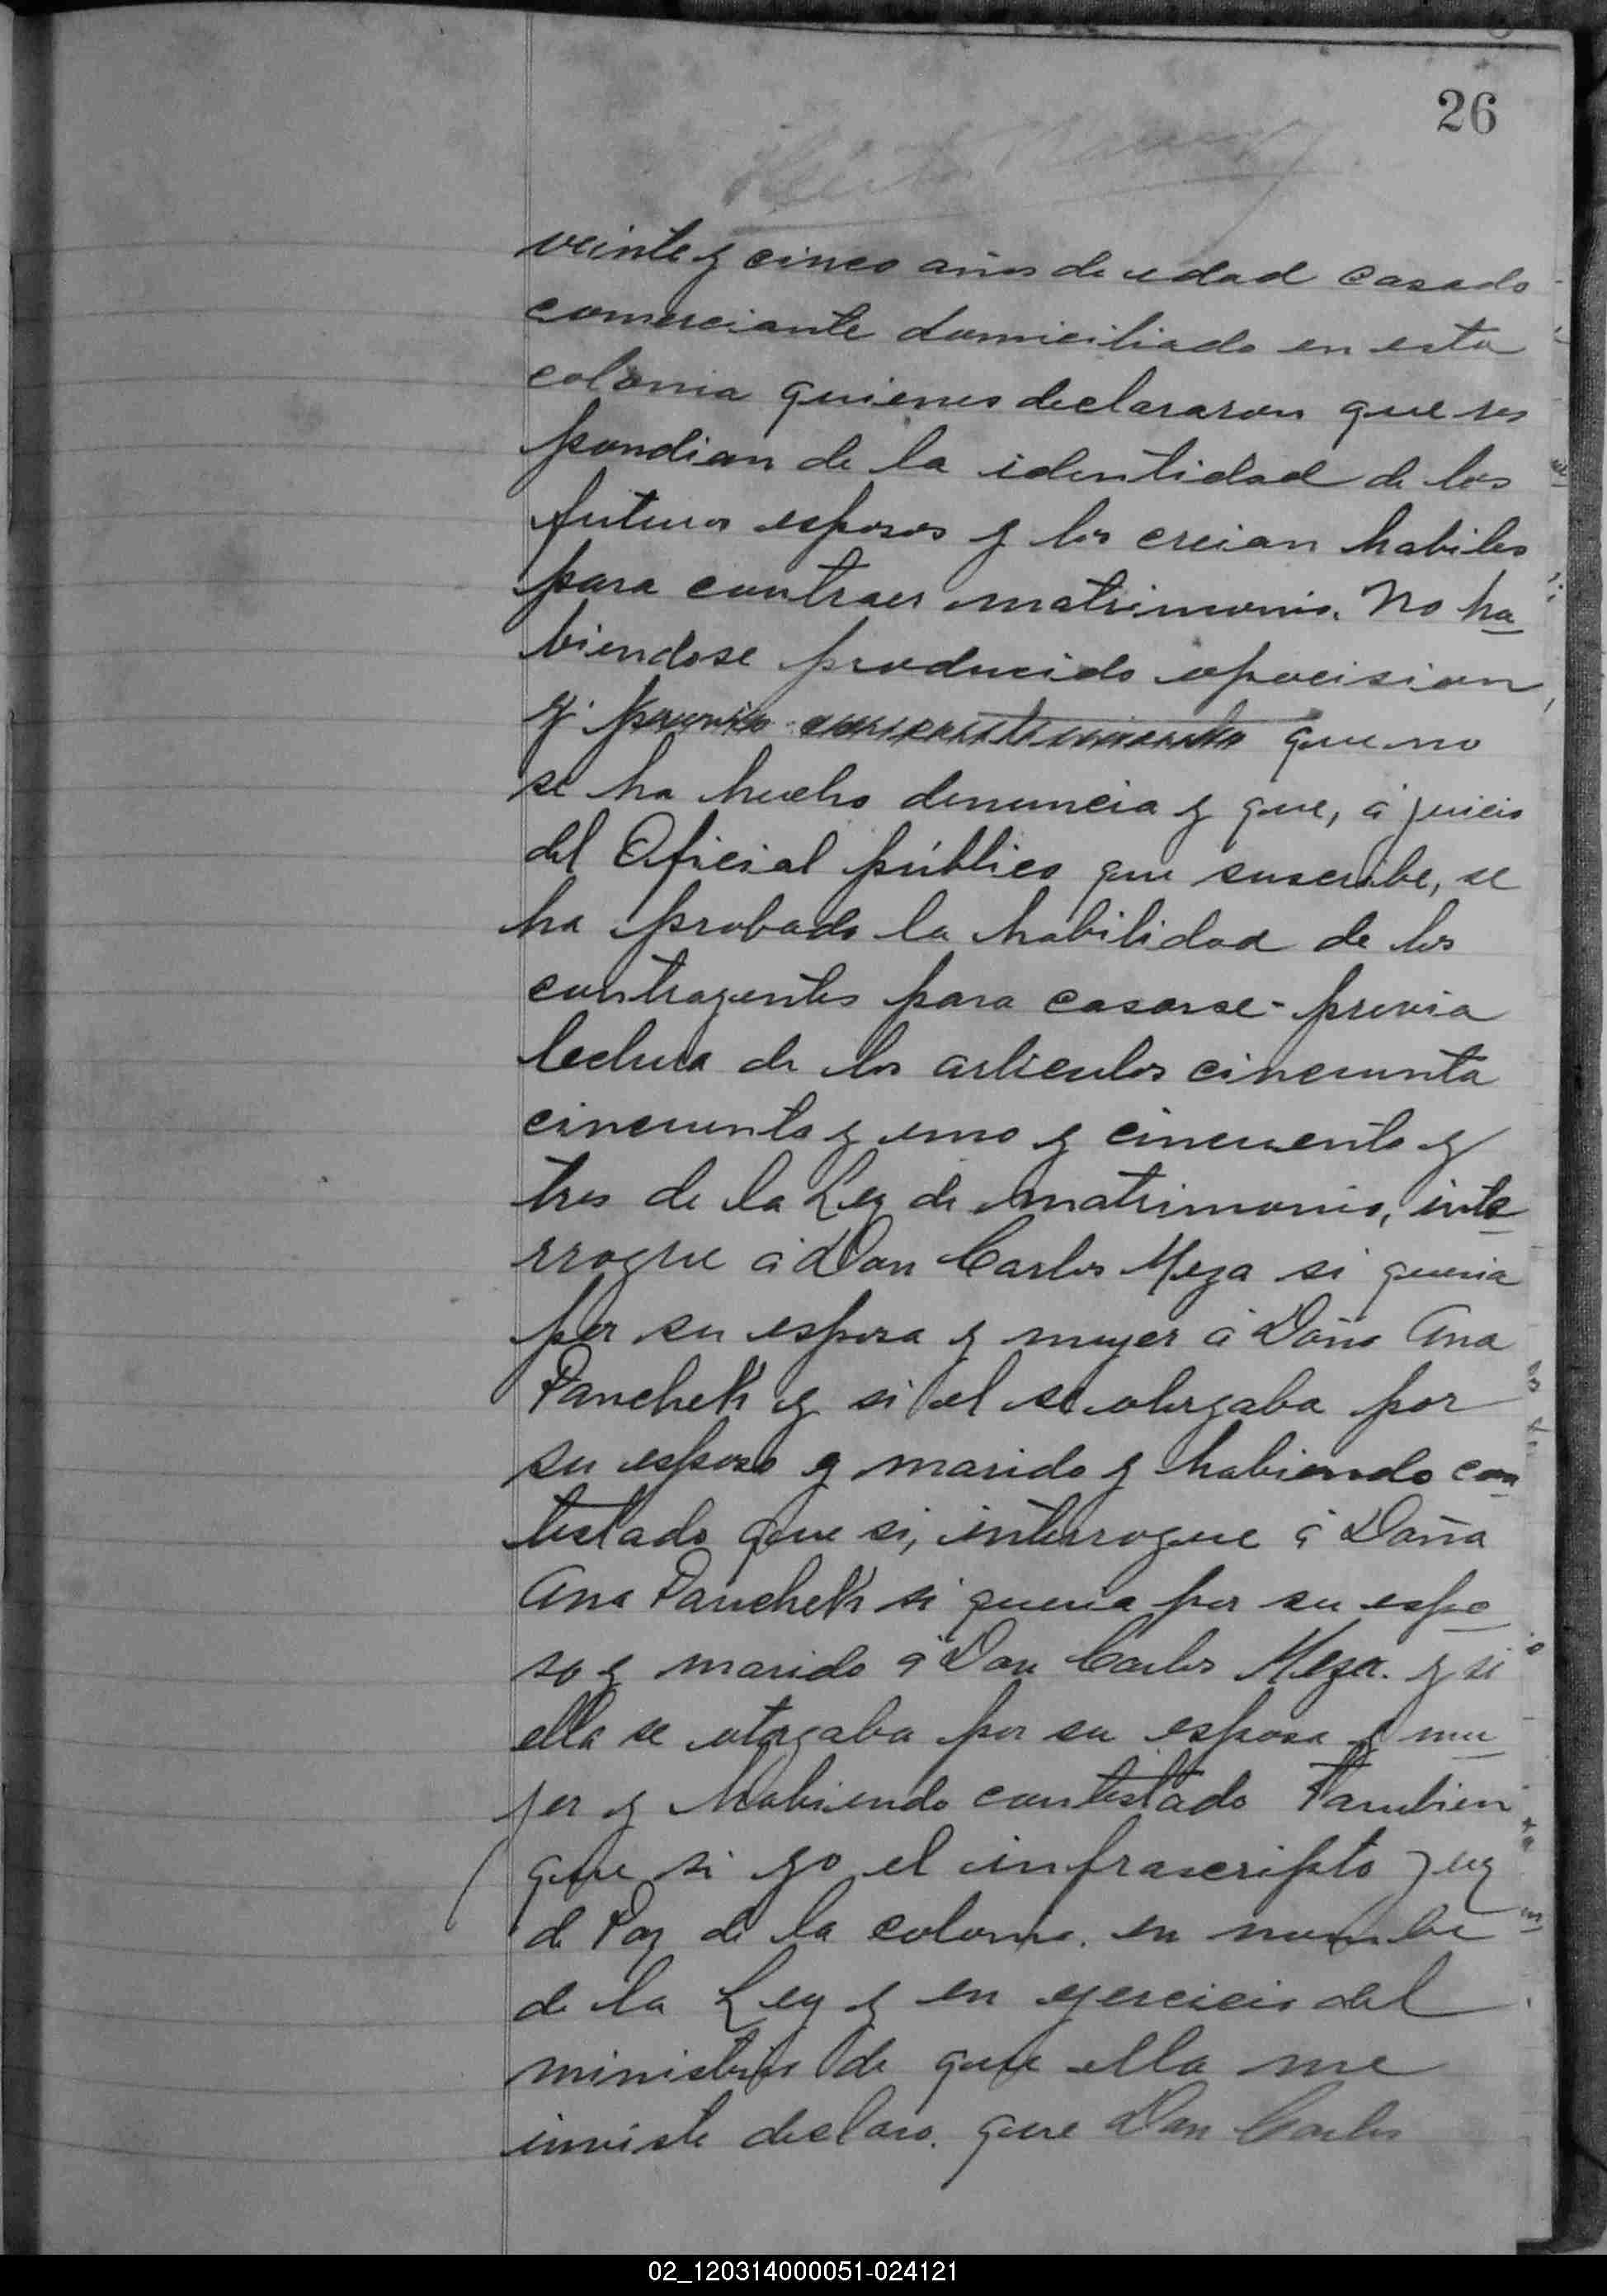 26
veinte y cinco años de edad casado
comerciante domiciliado en esta
colonia quienes declararon que res
pondian de la identidad de los
futuros esposos y los creian habiles
para contraer matrimonio. No ha
biendose producido oposision,
y previo consentimiento que no
se ha hecho denuncia y que, á juicio
del Oficial público que suscribe, se
ha probado la habilidad de los
contrayentes para casarse - previa
lectura de los articulos cincuenta
cincuenta y uno y cincuenta y
tres de la Ley de matrimonio, inte
rrogue á Don Carlos Meza si queria
por su esposa y muger á Doña Ana
Panchek y si el se otorgaba por
su esposo y marido y habiendo con
testado que si, interrogue á Doña
Ana Panchek si queria por su espo
so y marido á Don Carlos Meza. y si
ella se otorgaba por su esposa y mu
jer y habiendo contestado tambien
que si yo el infrascripto Juez
de Paz de la colonia. en nombre
de la Ley y en ejercicio del
ministerio de que ella me
inviste declaro. que Don Carlos
02_120314000051-024121